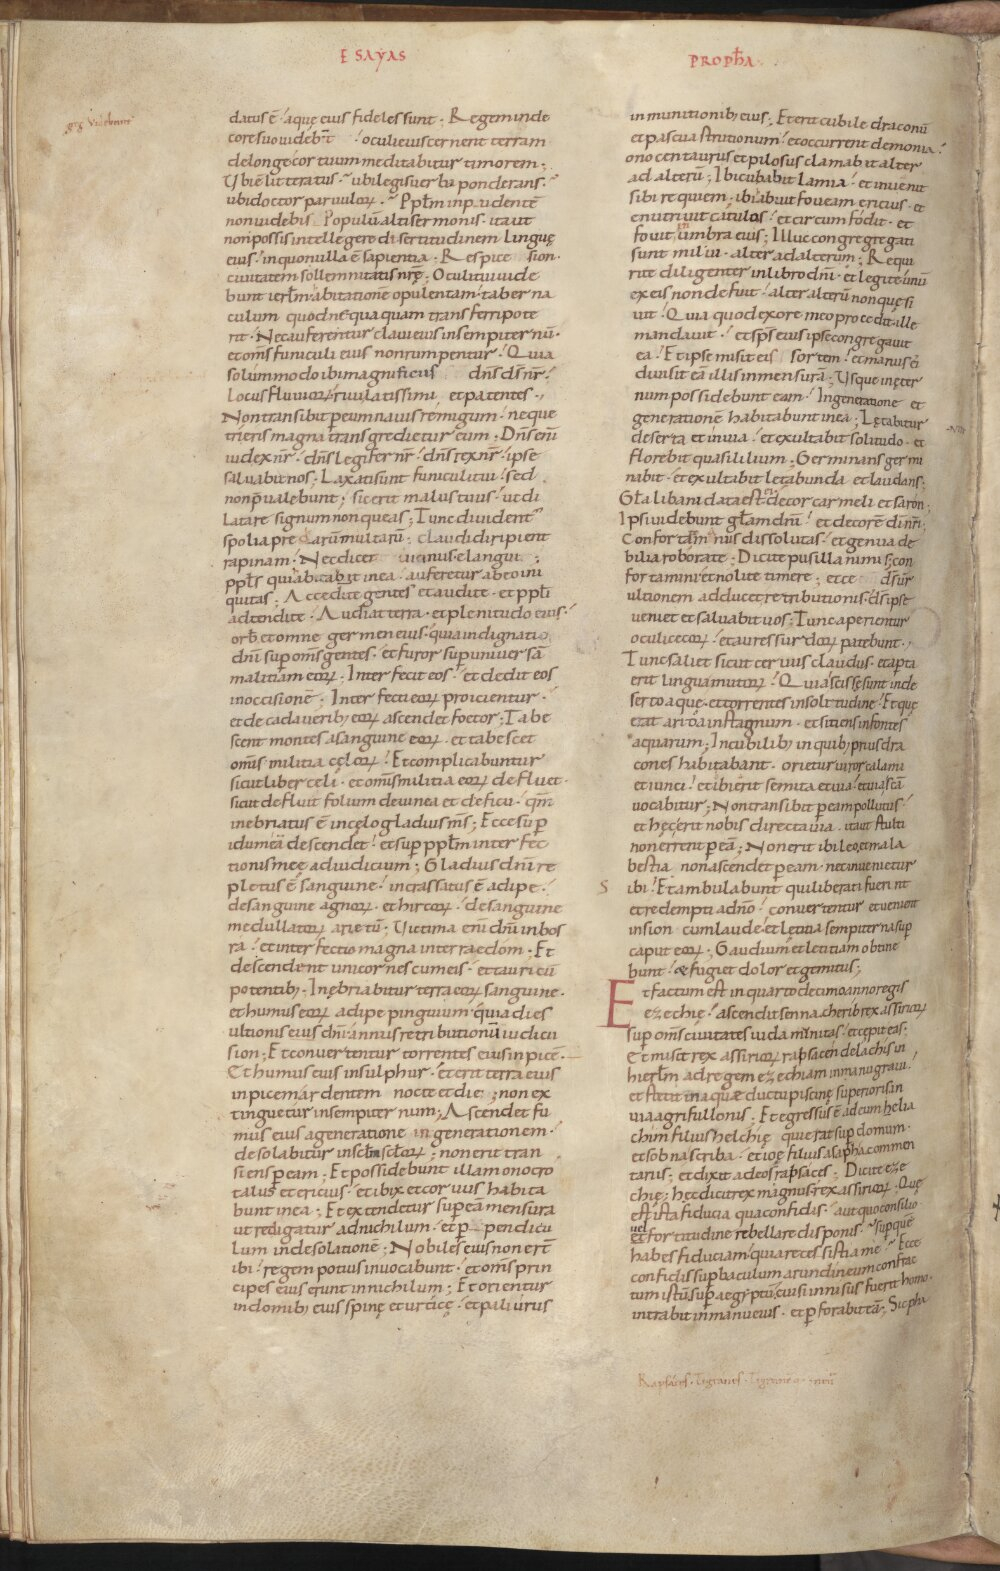 ESAYAS
PROPHA
datus ē· aquę eius fideles sunt· Regem inde
core suo videbt̄ oculi eius cernent terram
de longe· cor tuum meditabitur timorem·
Ubi ē litteratus· ubi legis verba ponderans·
ubi doctor parvuloꝝ· Pplm̄ inpudentē
non videbis· Populū alti sermonis· ita ut
non possis intellegere disertitudinem linguę
eius· in quo nulla ē sapientia· Respice sion·
civitatem sollemnitatis nrę· Oculi tui vide
bunt ierłm· abitationē opulentam· taberna
culum quod nequaquam transferri pote
rit· Nec auferentur clavi eius in sempiternū·
et om̄s funiculi eius non rumpentur· Quia
solummodo ibi magnificus dn̄s ds̄ nr̄·
Locus fluvioꝝ rivi latissimi et patentes·
Non transibit p̱ eum navis remigum· neque
trieris magna transgredietur eum· Dn̄s enī
iudex nr̄· dn̄s legifer nr̄· dn̄s rex nr̄· ipse
salvabit nos· Laxati sunt funiculi tui· sed
non p̄valebunt· sic erit malus tuus· ut di
latare signum non queas· Tunc dividentr̃
spolia predarū multarū· claudi diripient
rapinam· Nec dicet vicinus· elangui·
ppłs qui abitabit in ea· auferetur ab eo ini
quitas· Accedite gentes et audite· et ppłi
adtendite· Audiat terra· et plenitudo eius·
orb̄ et omne germen eius· quia indignatio
dn̄i sup̱ om̄s gentes· et furor sup̱ universā
malitiam eoꝝ· Interfecit eos· et dedit eos
in occisionē· Interfecti eoꝝ proicientur·
et de cadaverib; eoꝝ ascendet foetor· Tabe
scent montes a sanguine eoꝝ· et tabescet
om̄s militia cęloꝝ· Et complicabuntur
sicut liber celi· et om̄s militia eoꝝ defluet·
sicut defluit folium de vinea et de ficu· qm̄
inebriatus ē in cęlo gladius m̄s· Ecce sup̱
idumeā descendet· et sup̱ pplm̄ interfec
tionis meę ad iudicium· Gladius dn̄i re
pletus ē sanguine· incrassatus ē adipe·
de sanguine agnoꝝ· et hircoꝝ· de sanguine
medullatoꝝ arietū· Victima enī dn̄i in bos
ra· et interfectio magna in terra edom· Et
descendent unicornes cum eis· et tauri cū
potentib;· Inębriabitur terra eoꝝ sanguine·
et humus eoꝝ adipe pinguium· quia dies
ultionis eius dn̄i· annus retributionū iudicii
sion· Et convertentur torrentes eius in picē·
Et humus eius in sulphur· et erit terra eius
in picem ardentem nocte et die· non ex
tinguetur in sempiternum· Ascendet fu
mus eius a generatione in generationem·
desolabitur in scłm scłoꝝ· non erit tran
siens p̱ eam· Et possidebunt illam onocro
talus et ericius· et ibix et corvus habita
bunt in ea· Et extendetur sup̱ eā mensura
ut redigatur ad nichilum· et p̱pendicu
lum in desolationē· Nobiles eius non ert̄
ibi· regem potius invocabunt· et om̄s prin
cipes eius erunt in nichilum· Et orientur
in domib; eius spinę et urticę· et paliurus
in munitionib; eius· Et erit cubile draconū
et pascua strutionum· et occurrent demonia·
onocentaurus et pilosus clamabit alter
ad alterū· Ibi cubabit lamia· et invenit
sibi requiem· ibi abuit foveam ericius· et
enutrivit catulos· et circumfodit· et
fovit in umbra eius· Illuc congregati
sunt milvi· alter ad alterum· Requi
rite diligenter in libro dn̄i· et legite· unū
ex eis non defuit· alter alterū non quęsi
vit· Quia quod ex ore meo procedit· ille
mandavit· et sp̄s eius ipse congregavit
ea· Et ipse misit eis sortem· et manus ei
divisit eā illis in mensurā· Usque in ęter
num possidebunt eam· In generatione et
generationē habitabunt in ea· Lętabitur
deserta et invia· et exultabit solitudo· et
florebit quasi lilium· Germinans germi
nabit· et exultabit letabunda et laudans·
Gła libani data est ei· decor carmeli et saron·
Ipsi videbunt głam dn̄i· et decorē di nr̄i·
Confortate manus dissolutas· et genua de
bilia roborate· Dicite pusillanimis· con
fortamini et nolite timere· ecce ds̄ vr̄
ultionem adducet retributionis· ds̄ ipse
veniet et salvabit vos· Tunc aperientur
oculi cecoꝝ· et aures surdoꝝ patebunt·
Tunc saliet sicut cervus claudus· et apta
erit lingua mutoꝝ· Quia scissę sunt in de
serto aque· et torrentes in solitudine· Et que
erat arida in stagnum· et sitiens in fontes
aquarum· In cubilib; in quib; prius dra
cones habitabant· orietur viror calami
et iunci· et ibi erit semita et via· et via scā
vocabitur· Non transibit p̱ eam pollutus·
et hęc erit nobis directa via· ita ut stulti
non errent p̱ eā· Non erit ibi leo, et mala
bestia non ascendet p̱ eam· nec invenietur
ibi· Et ambulabunt qui liberati fuerint
S
et redempti a dn̄o· convertentur et venient
in sion cum laude· et lętitia sempiterna sup̱
caput eoꝝ· Gaudium et letitiam obtine
bunt· & fugiet dolor et gemitus·
Et factum est in quarto decimo anno regis
ezechię· ascendit sennacherib rex assirioꝝ
sup̱ om̄s civitates iuda munitas· et cepit eas·
Et misit rex assirioꝝ rapsacen de lachis in
hierłm ad regem ezechiam in manu gravi·
et stetit in aquæductu piscinę superioris in
via agri fullonis· Et egressus ē ad eum helia
chim filius helchię qui erat sup̱ domum·
et sobna scriba· et ioę filius asapha commen
tarius· et dixit ad eos rapsaces· Dicite eze
chię· hęc dicit rex magnus· rex assirioꝝ· Quę
est ista fiducia qua confidis· aut quo consilio
vel fortitudine rebellare disponis· sup̱ quē
habes fiduciam· quia recessisti a me· Ecce
confidis sup̱ baculum arundineum confrac
tum istū sup̱ aegyptū, cui si innisus fuerit homo·
intrabit in manu eius· et p̱forabit eā· Sic pha
Rapsaces· Tigranes·